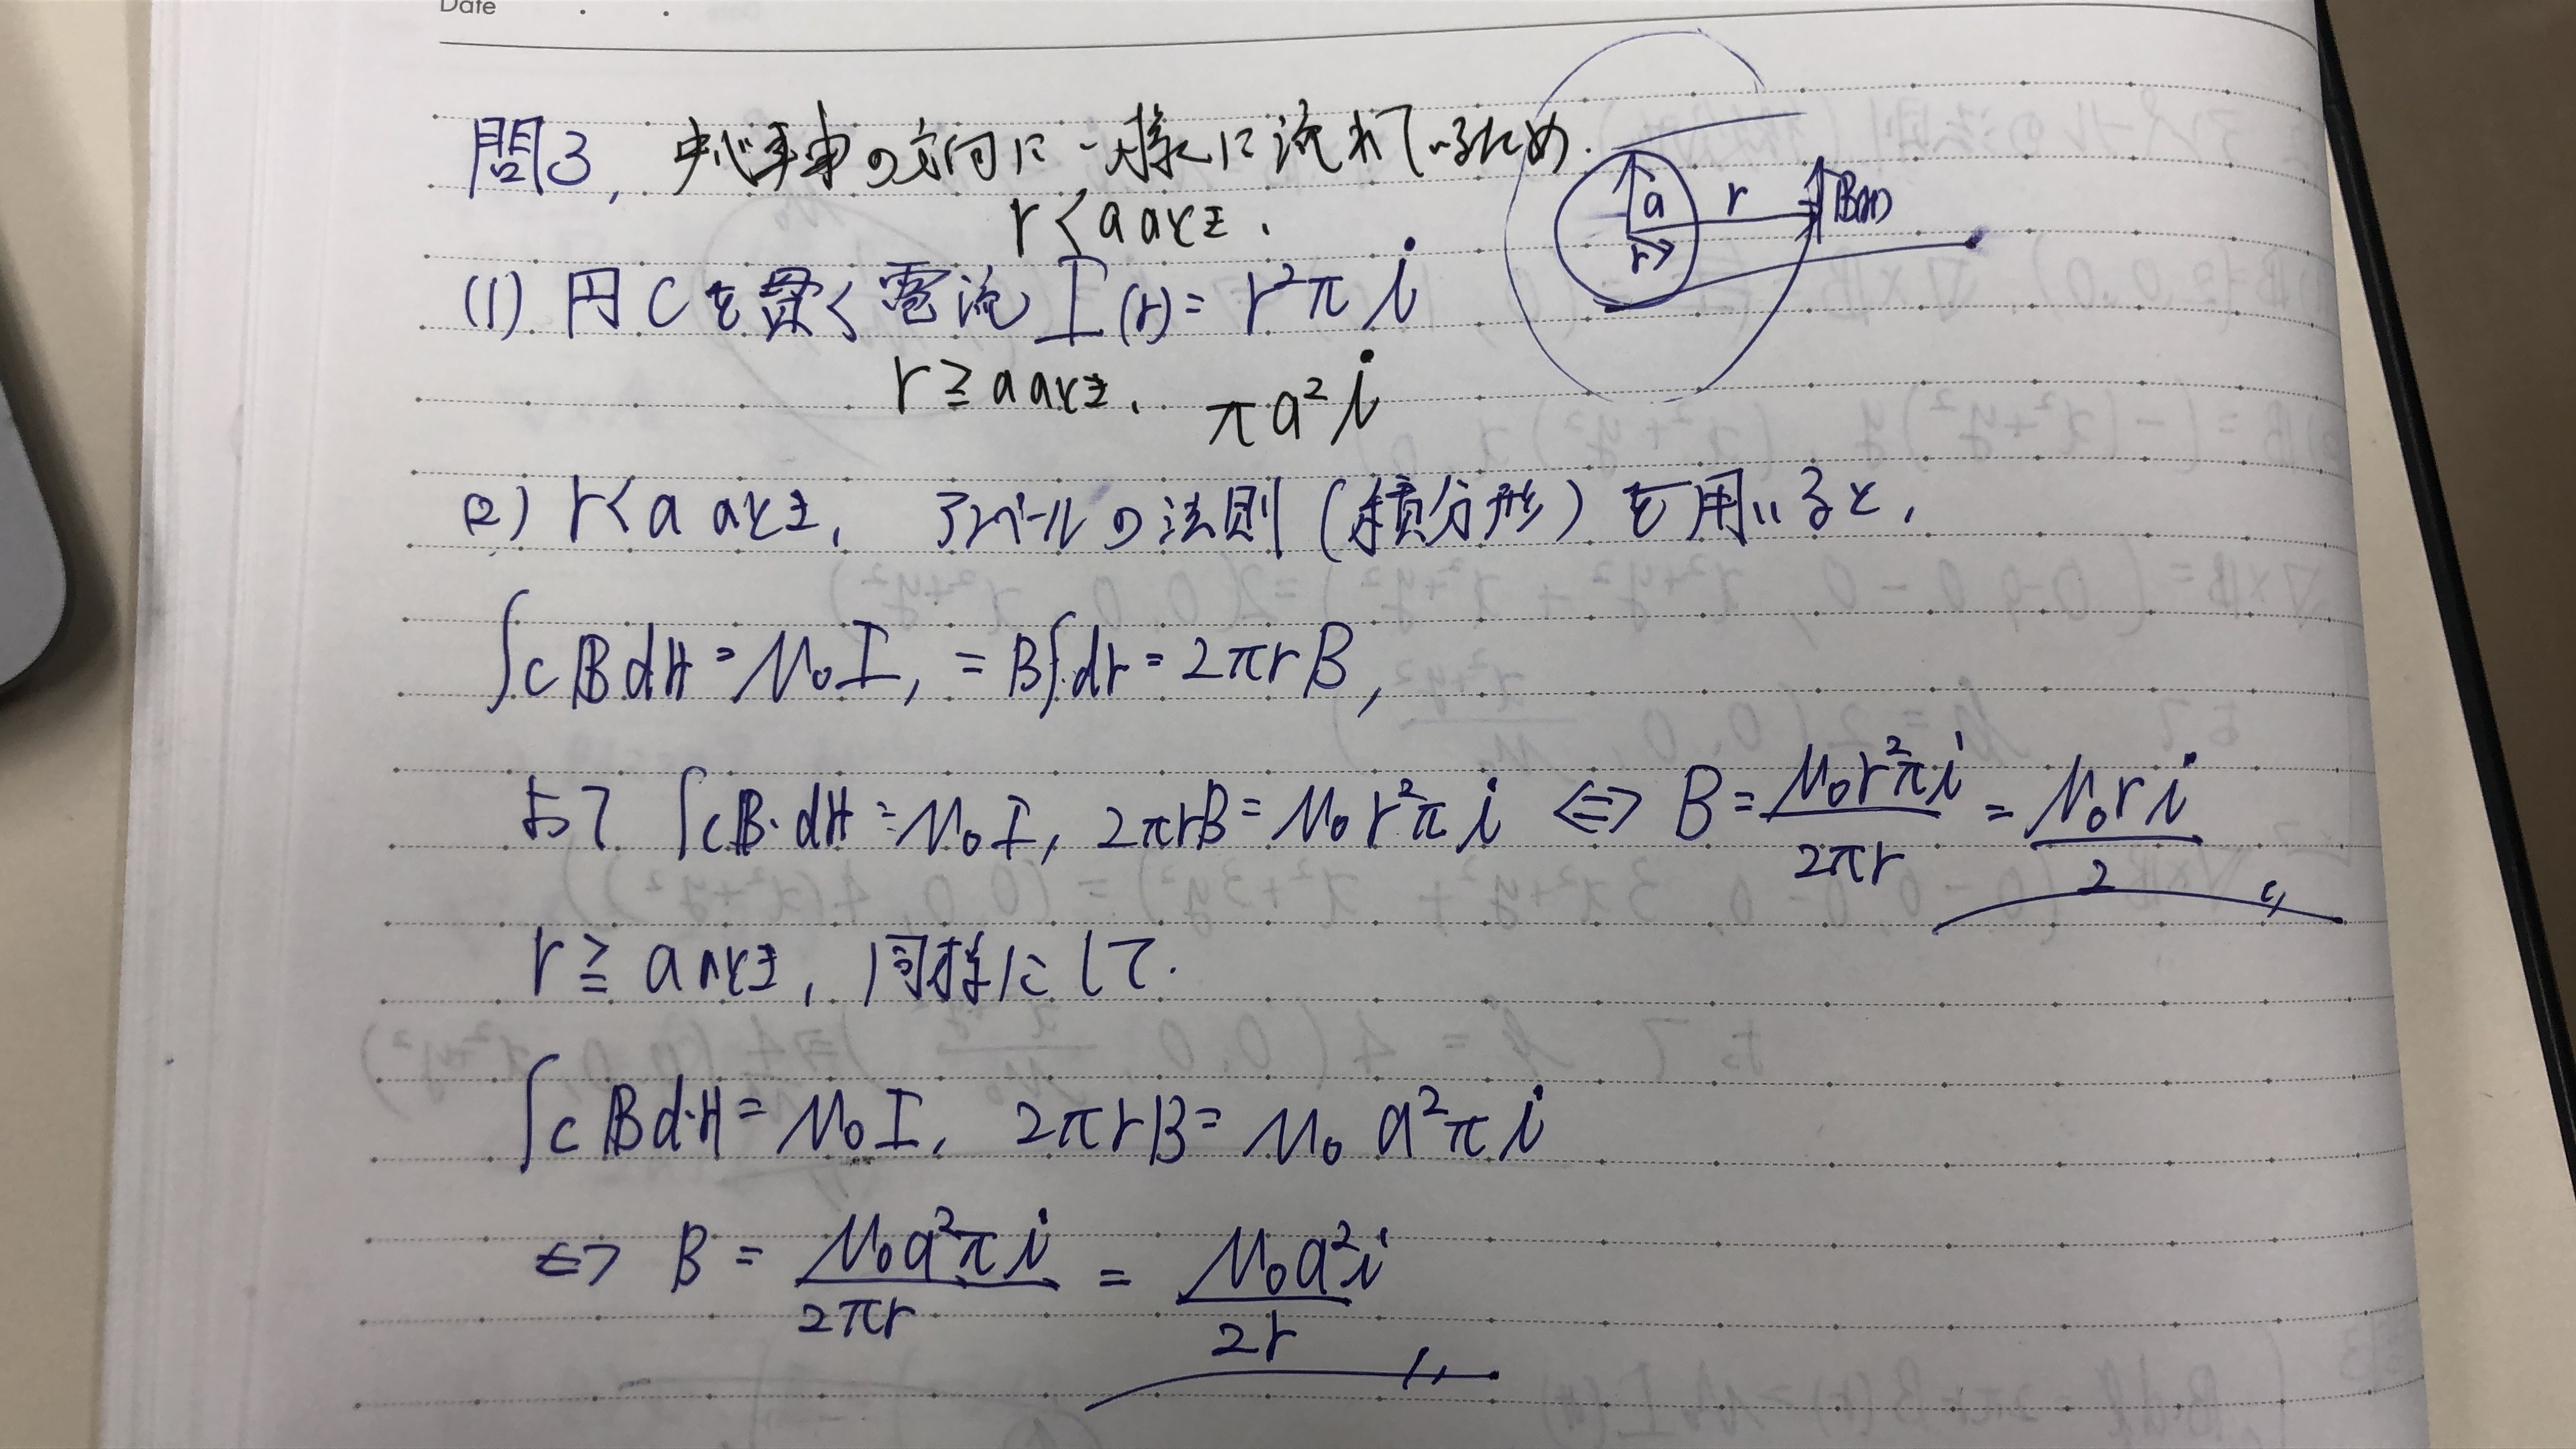 Date
問3, 中心軸の方向に一様に流れているため.
r<aのとき.
a r B(r)
r
(1) 円Cを貫く電流 I(r)= r²π i
r≧aのとき. πa² i
(2) r<aのとき, アンペールの法則(積分形)を用いると,
∫c B dr = μ₀I, = B∫c dr = 2πrB,
よって ∫c B・dr = μ₀I, 2πrB = μ₀ r²π i ⇔ B = μ₀r²πi / 2πr = μ₀ r i / 2 〃
r≧aのとき, 同様にして.
∫c B d・r = μ₀I, 2πrB = μ₀ a²π i
⇔ B = μ₀a²π i / 2πr = μ₀a²i / 2r 〃